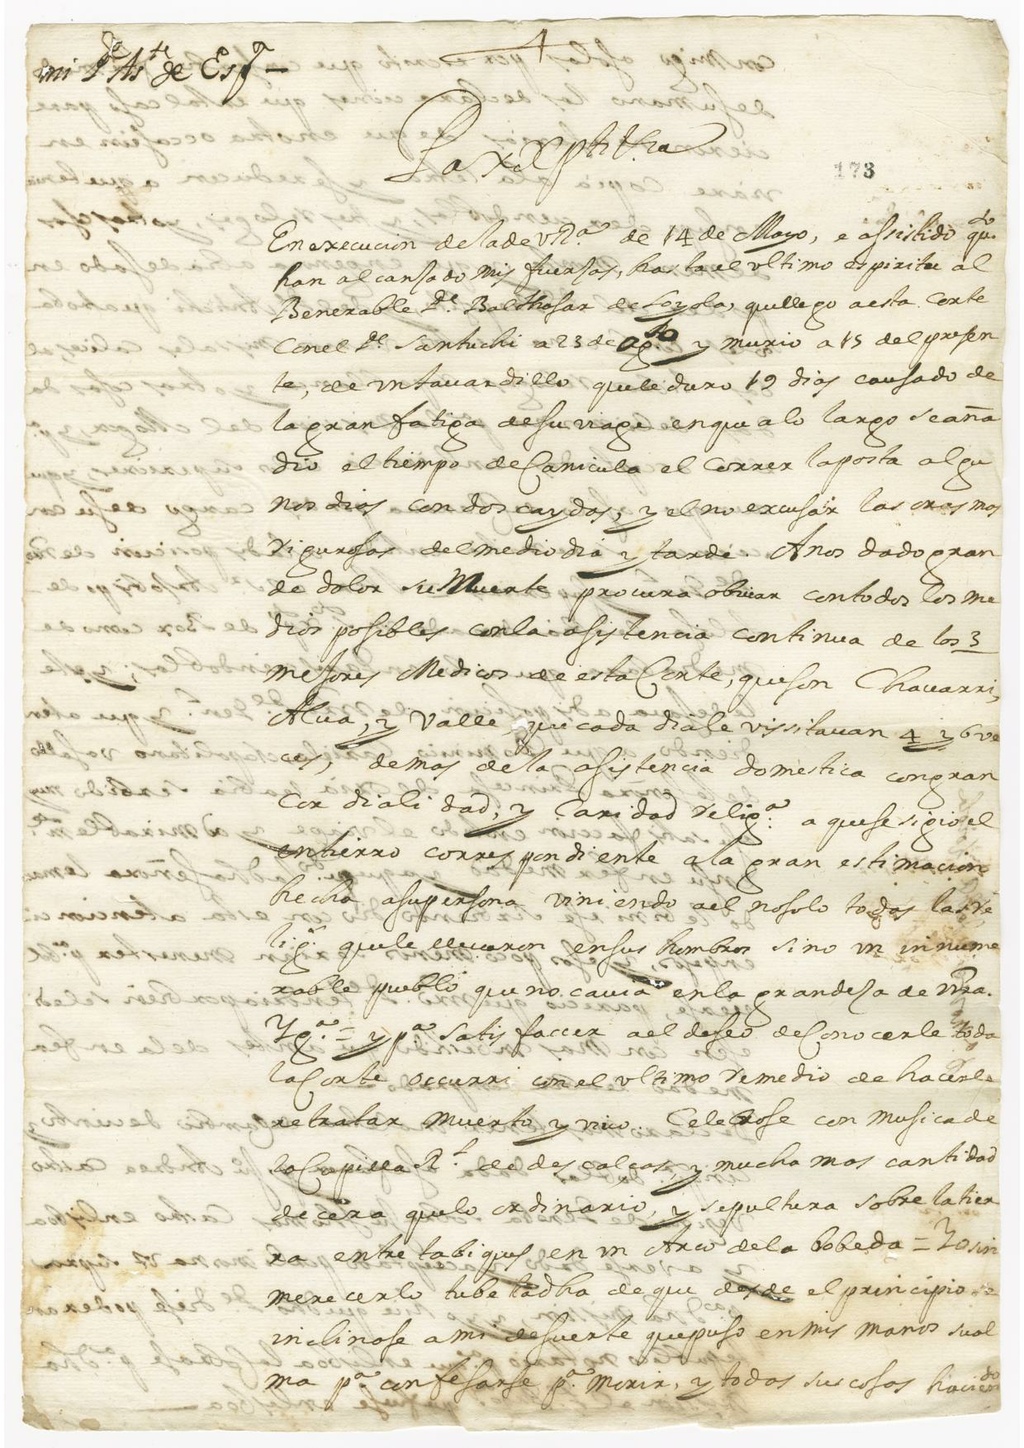 mi P.e As.te de Esp.a
Pax Xpti V.ra
173
En execucion de la de VR.a de 14 de Mayo, e assistido q.do
han alcansado mis fuersas, hasta el vltimo espiritu al
Benerable P.e Balthasar de Loyola, que llego a esta Corte
con el P.e Santuchi a 23 de Ag.to y murio a 15 del presen
te, de vn tauardillo que le duro 19 dias causado de
la gran fatiga de su viage en que a lo largo se aña
dio el tiempo de Canicula el correr la posta algu
nos dias con dos caydas, y el no excusar las oras mas
rigurosas del medio dia y tarde. A nos dado gran
de dolor su Muerte procura obuiar con todos los me
dios posibles con la asistencia continua de los 3
mejores Medicos de esta Corte, que son Chauarri,
Alua, y Valle, que cada dia le vissitauan 4 y 6 ve
ces, demas de la asistencia domestica con gran
Cordialidad, y Caridad relig.a a que se sigio el
entierro correspondiente a la gran estimacion
hecha a su persona viniendo a el no solo todas las re
lig.s que le lleuaron en sus hombros sino vn innume
rable pueblo que no cauia en la grandesa de nra.
Yg.a = y p.a satisfaccer a el deseo de Conocerle toda
la Corte occurri con el vltimo remedio de hacerle
retratar muerto y viuo. Celebrose con musica de
la Capilla R.l de descalcas, y mucha mas cantidad
de cera que lo ordinario, y sepultura sobre la tier
ra entre tabiques en vn Arco de la bobeda = Yo sin
merecerlo tube la dha de que desde el principio se
inclinase a mi de suerte que puso en mis manos su al
ma p.a confesarse p.a morir, y todas sus cosas haciendo